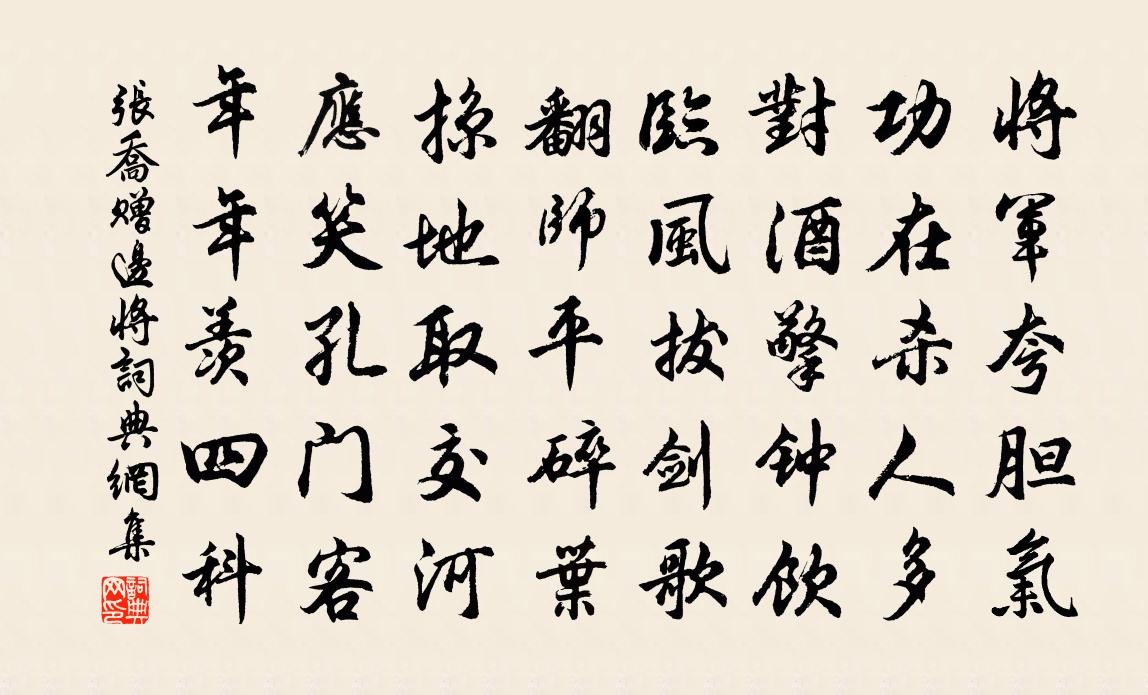 将軍夸胆氣
功在杀人多
對酒擎钟飲
臨風拔剑歌
翻師平碎葉
掠地取交河
應笑孔门客
年年羨四科
張喬赠邊将詞典網集
詞典网印